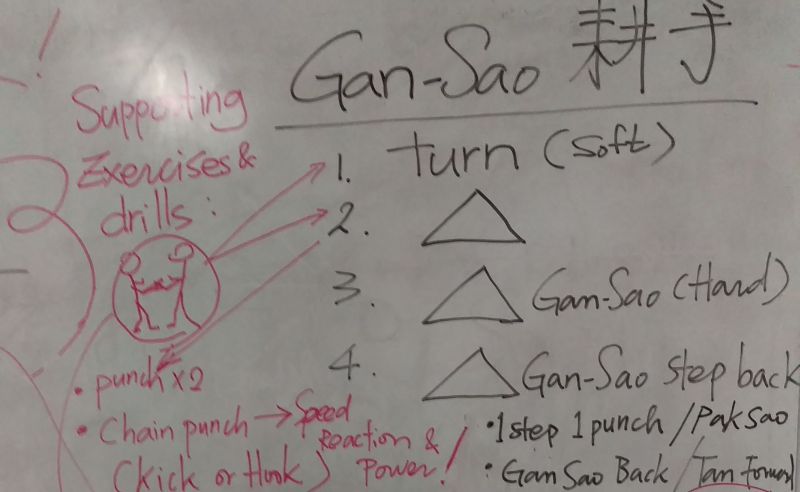 Gan-Sao 耕手
Supporting
Exercises &
drills:
1. turn (soft)
2.
3. Gan-Sao (Hard)
4. Gan-Sao step back
• punch x2
• Chain punch → Speed
Reaction &
(Kick or Hook) Power!
• 1 step 1 punch / Pak Sao
• Gan Sao Back / Tan Forward